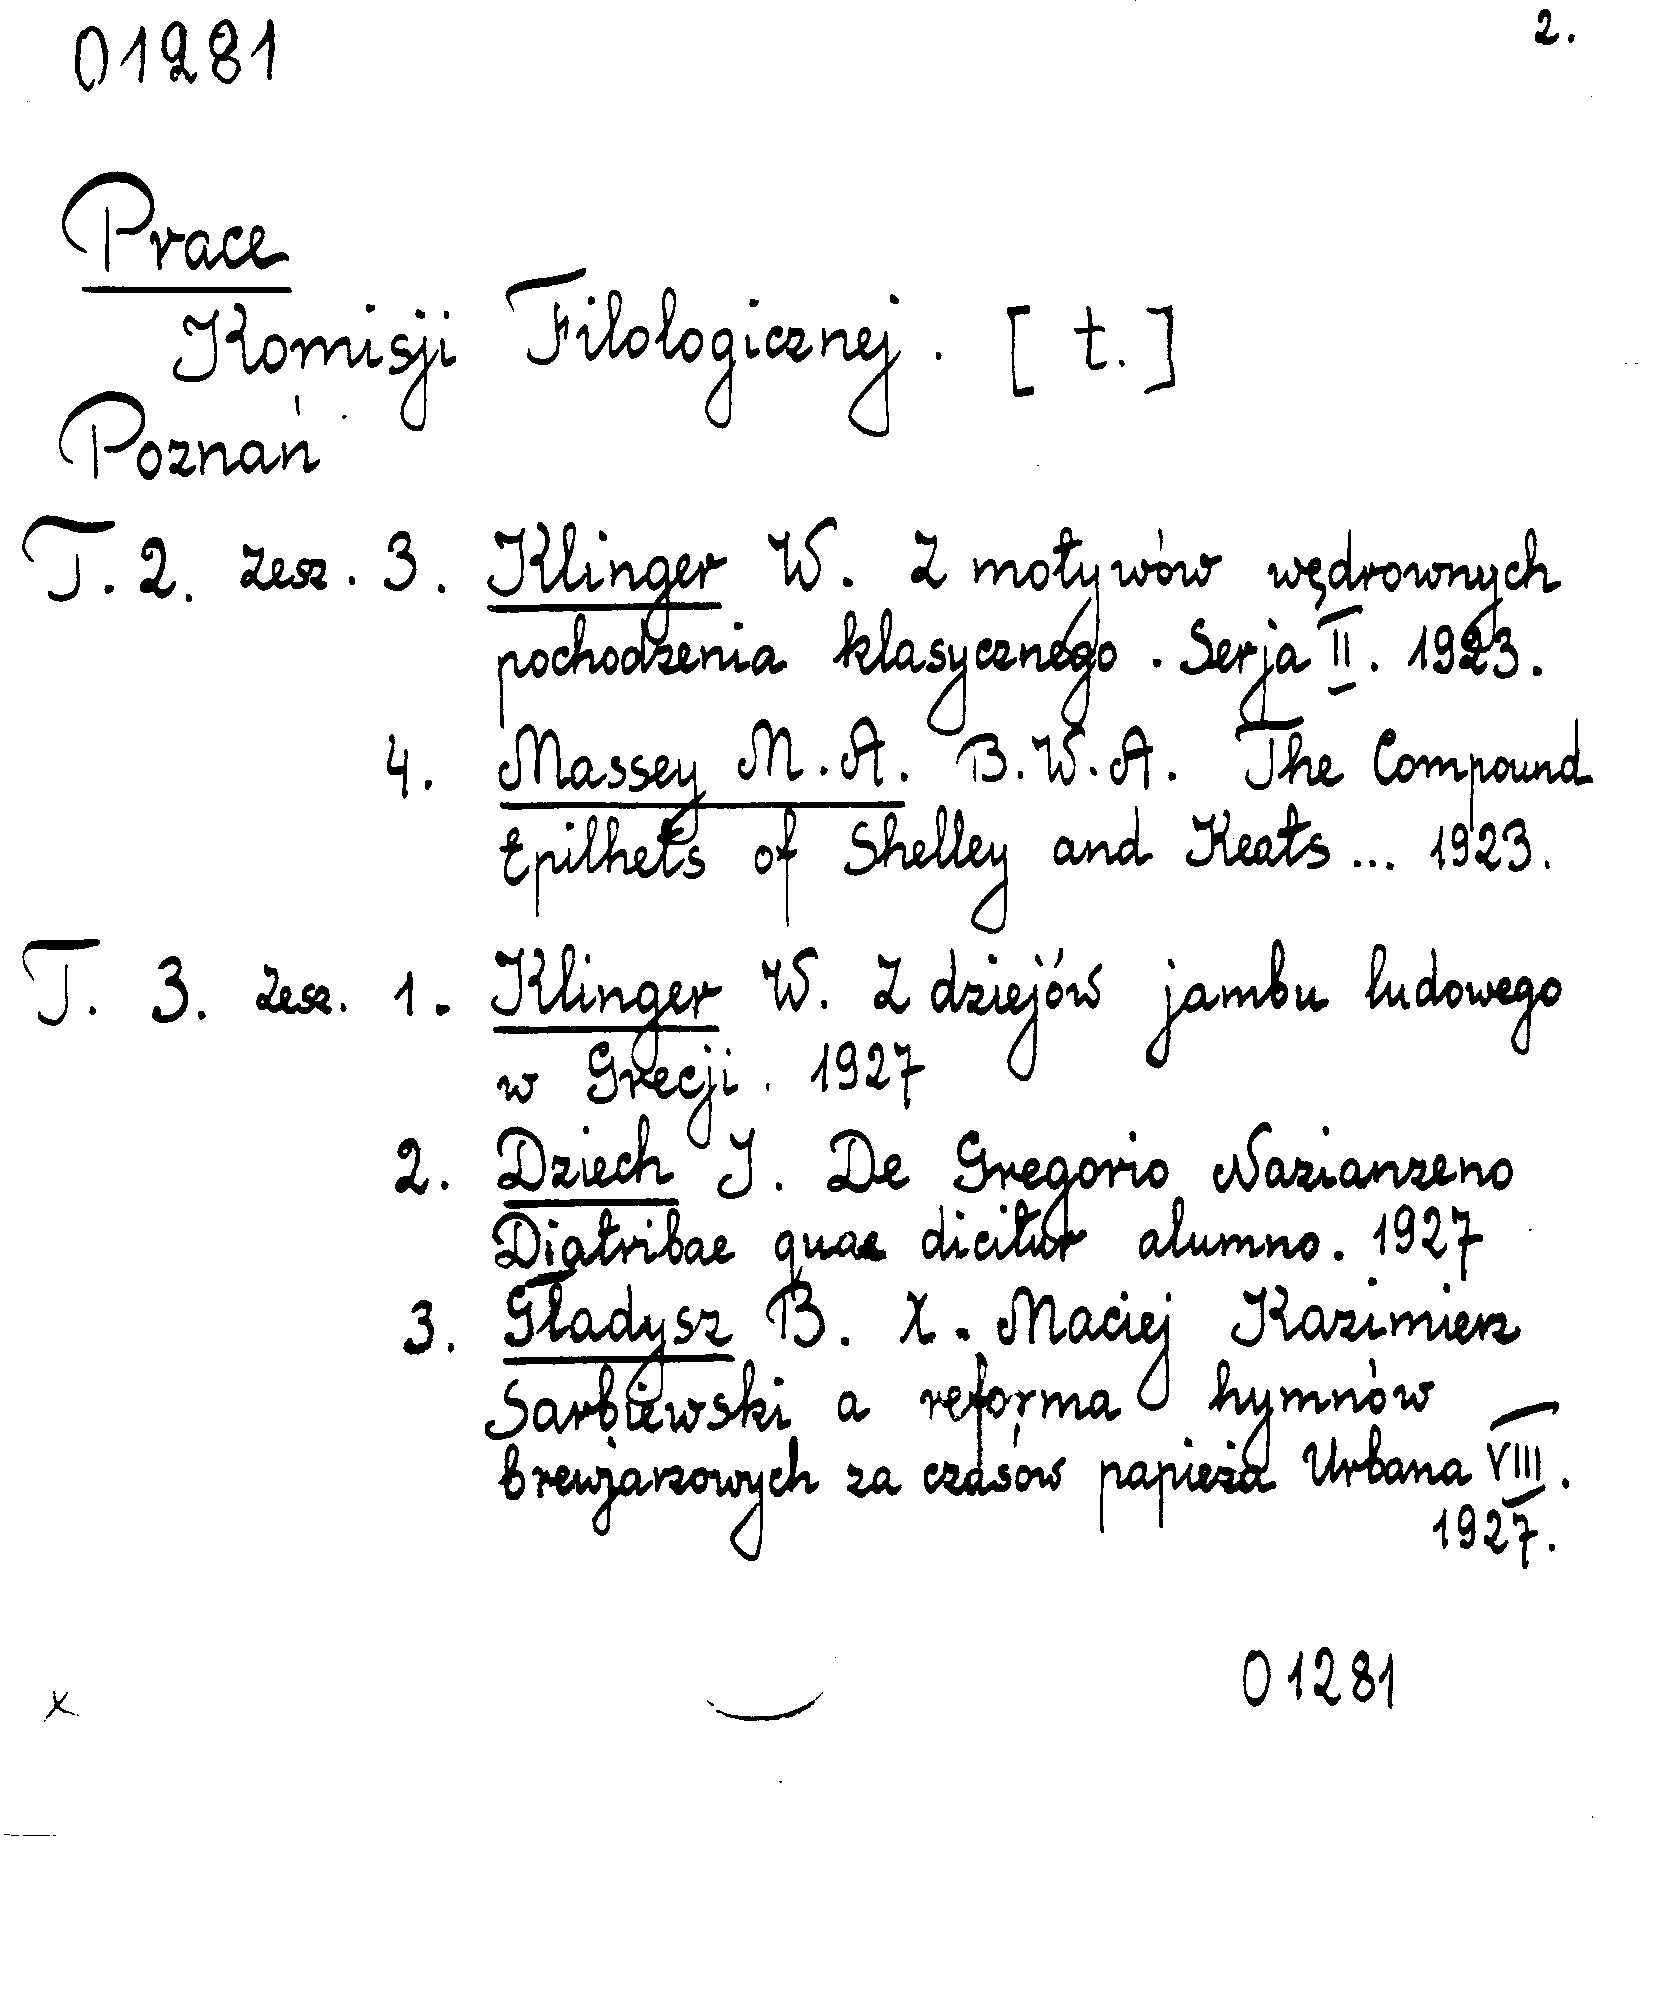 01281
2.
Prace
Komisji Filologicznej. [ t. ]
Poznań
T. 2. zesz. 3. Klinger W. Z motywów wędrownych
pochodzenia klasycznego. Serja II. 1923.
4. Massey M.A. B.W.A. The Compound
Epithets of Shelley and Keats ... 1923.
T. 3. zesz. 1. Klinger W. Z dziejów jambu ludowego
w Grecji. 1927
2. Dziech J. De Gregorio Nazianzeno
Diatribae quae dicitur alumno. 1927
3. Gładysz B. X. Maciej Kazimierz
Sarbiewski a reforma hymnów
brewjarzowych za czasów papieża Urbana VIII.
1927.
01281
x